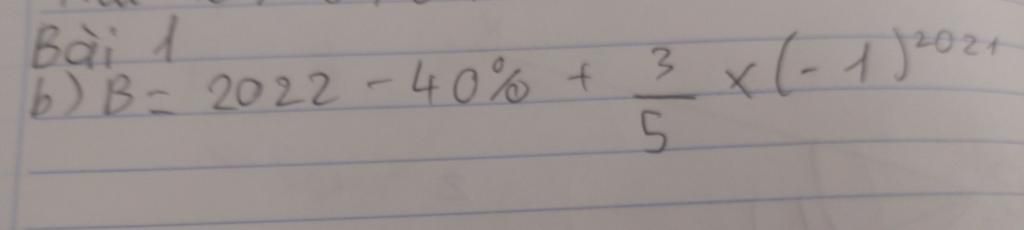 Bài 1
b) B = 2022 - 40% + 3/5 × (-1)^2021